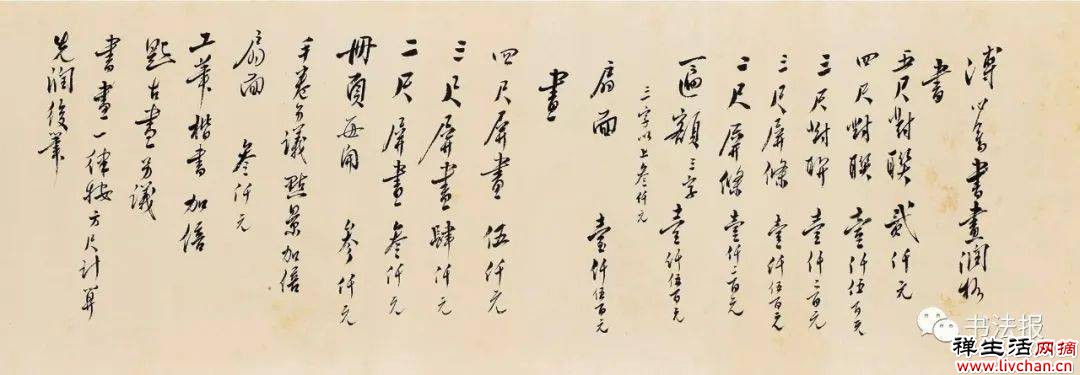 溥心畬書畫潤格
書
五尺對聯 貳仟元
四尺對聯 壹仟伍百元
三尺對联 壹仟二百元
三尺屏條 壹仟伍百元
二尺屏條 壹仟二百元
匾額 三字 壹仟伍百元
三字以上叁仟元
扇面 壹仟伍百元
畫
四尺屏畫 伍仟元
三尺屏畫 肆仟元
二尺屏畫 叁仟元
冊頁每開 叁仟元
手卷另議 點景加倍
扇面 叁仟元
工筆楷書加倍
題古畫另議
書畫一律按方尺計算
先潤後筆
书法报
禅生活网摘
www.livchan.cn